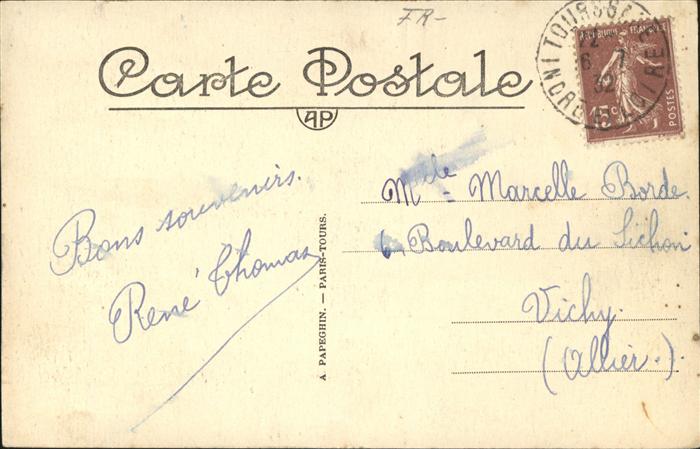 FR-
Carte Postale
AP
TOURS
INDRE ET LOIRE
6-7
32
REPUBLIQUE FRANÇAISE
15c
POSTES
Bons souvenirs.
René Thomas
A. PAPEGHIN. — PARIS-TOURS.
Mlle - Marcelle Borde.
6, Boulevard du Sichon
Vichy.
(Allier.).